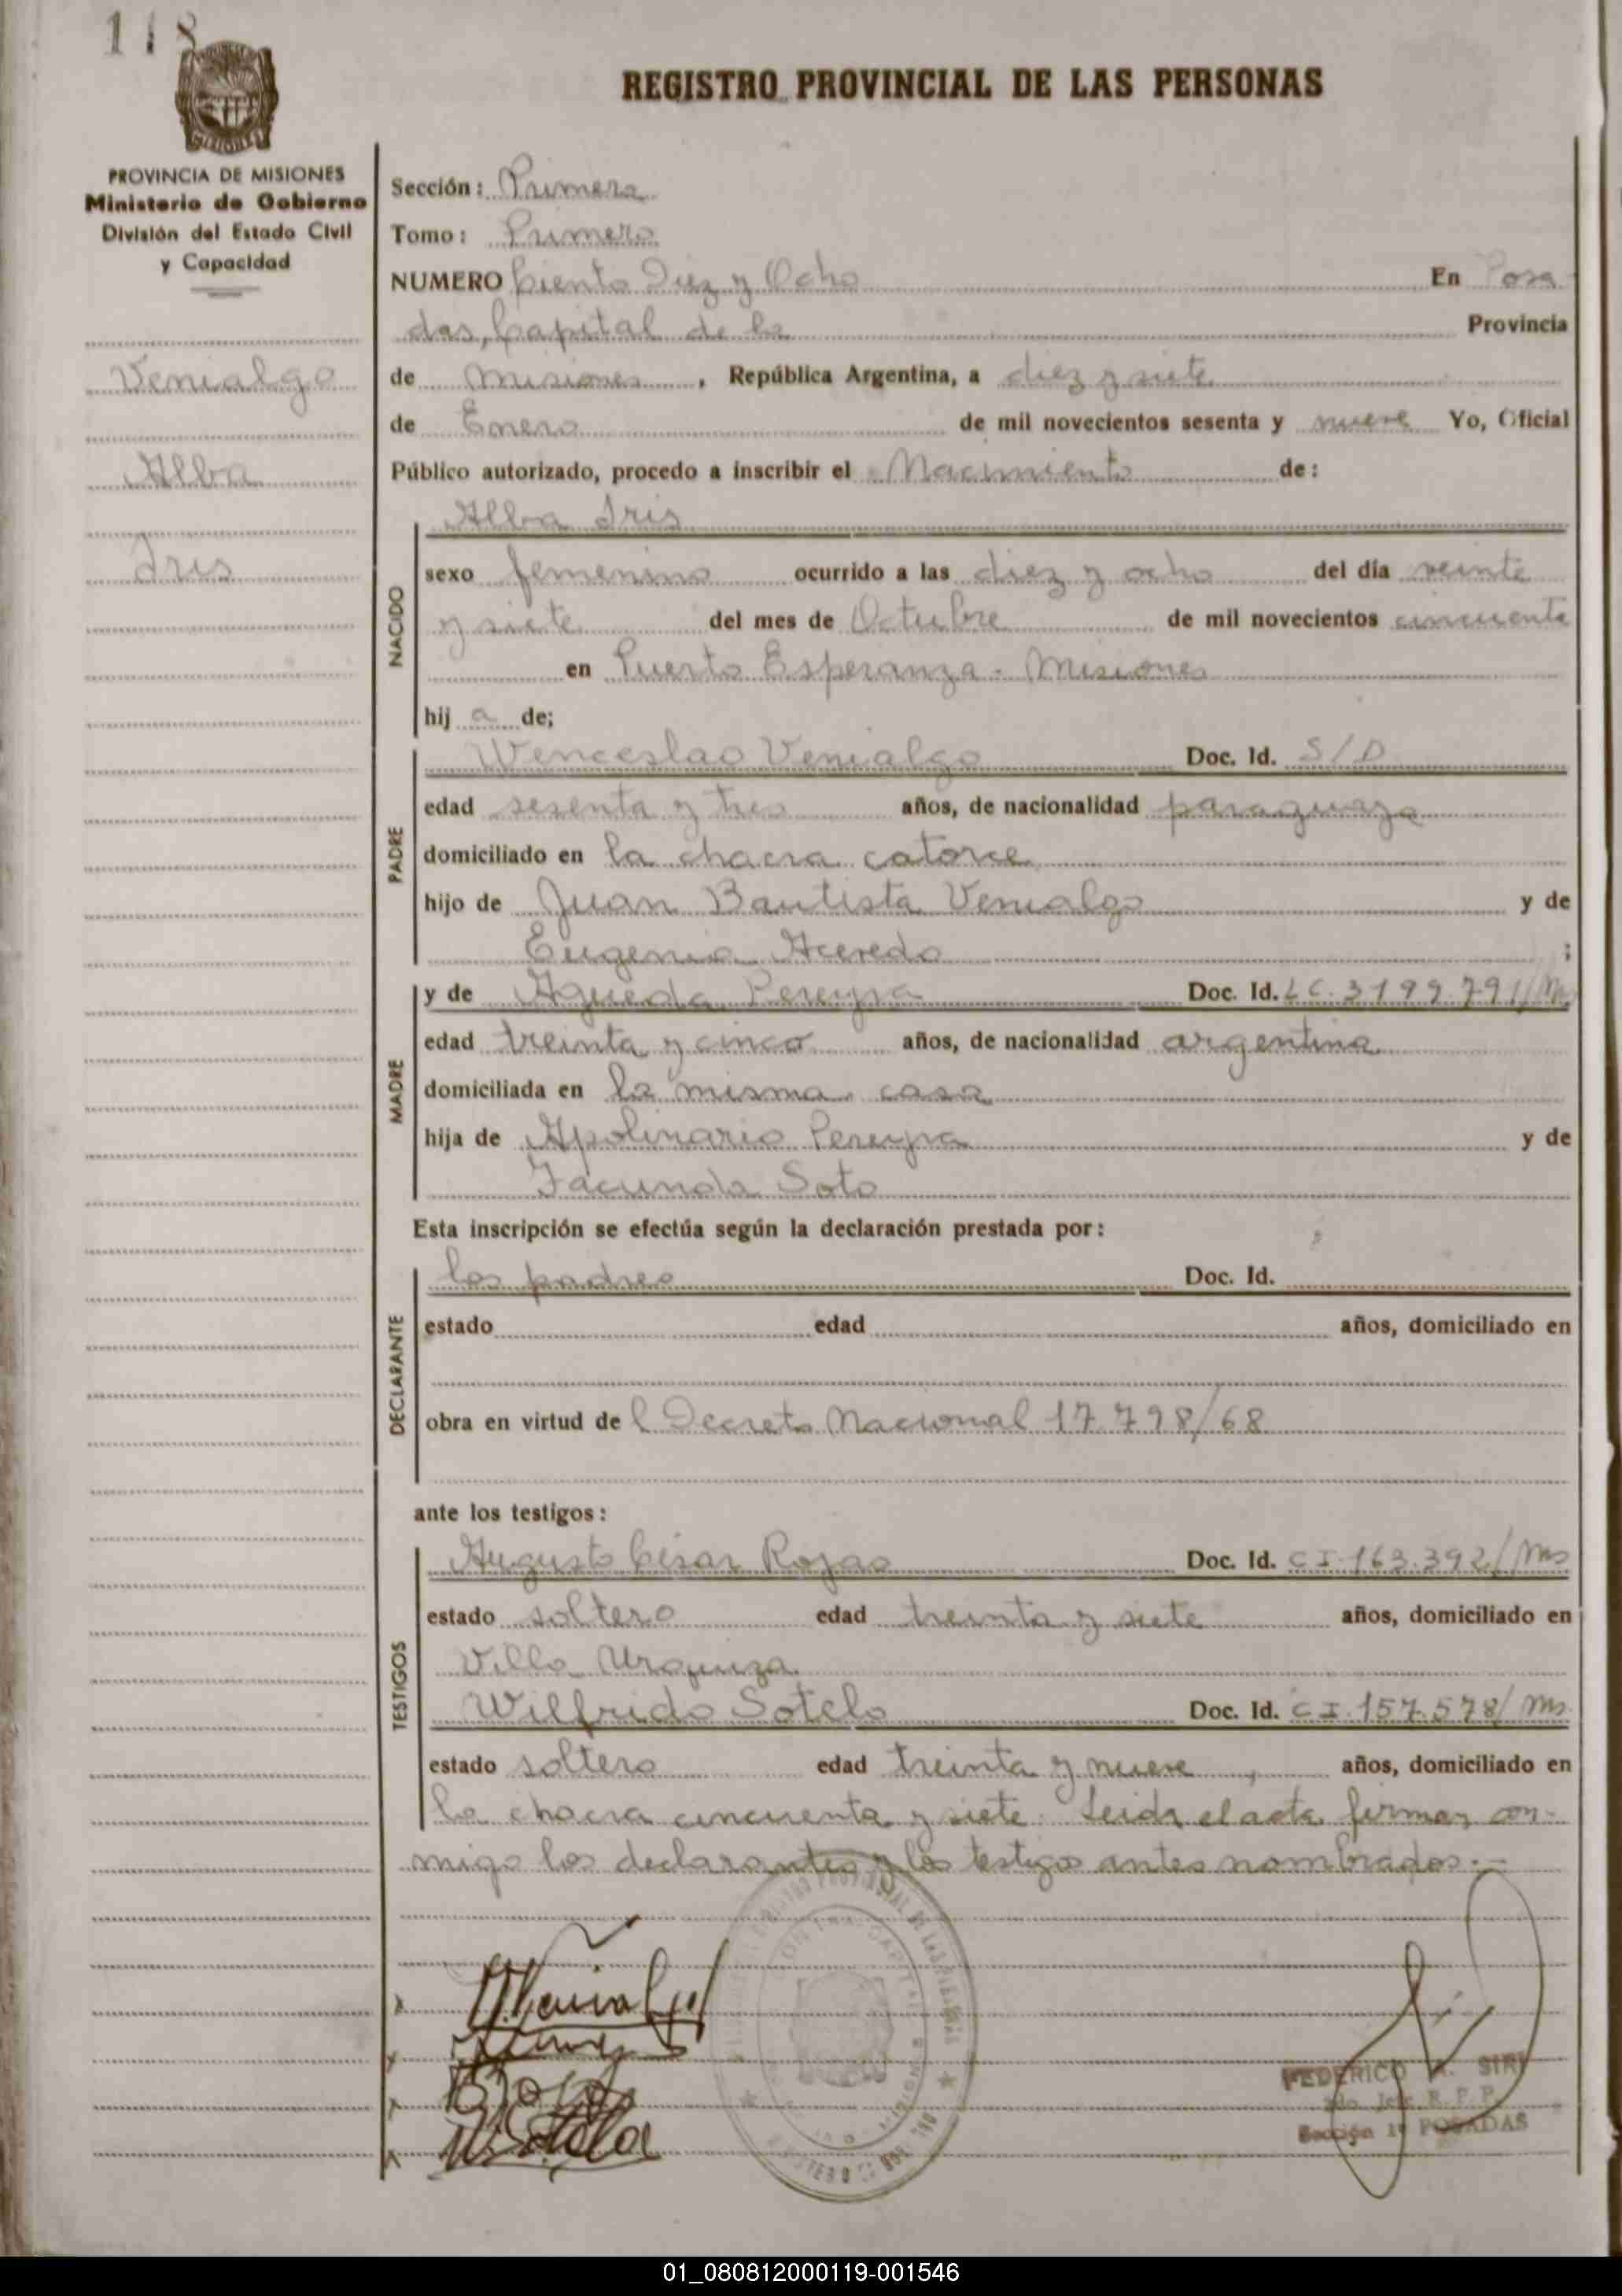 118
REGISTRO PROVINCIAL DE LAS PERSONAS
PROVINCIA DE MISIONES
Ministerio de Gobierno
División del Estado Civil
y Capacidad
Venialgo
Alba
Iris
Sección: Primera
Tomo: Primero
NUMERO Ciento Diez y Ocho En Posa
das, Capital de la Provincia
de Misiones, República Argentina, a diez y siete
de Enero de mil novecientos sesenta y nueve Yo, Oficial
Público autorizado, procedo a inscribir el Nacimiento de:
NACIDO
Alba Iris
sexo femenino ocurrido a las diez y ocho del día veinte
y siete del mes de Octubre de mil novecientos cincuenta
en Puerto Esperanza - Misiones
hij a de;
PADRE
Wenceslao Venialgo Doc. Id. S/D
edad sesenta y tres años, de nacionalidad paraguaya
domiciliado en la chacra catorce
hijo de Juan Bautista Venialgo y de
Eugenia Acevedo ;
MADRE
y de Agueda Pereyra Doc. Id. LC. 3199.791/M
edad treinta y cinco años, de nacionalidad argentina
domiciliada en la misma casa
hija de Apolinario Pereyra y de
Facunda Soto
Esta inscripción se efectúa según la declaración prestada por:
DECLARANTE
los padres Doc. Id.
estado edad años, domiciliado en
obra en virtud de l Decreto Nacional 17.798/68
ante los testigos:
TESTIGOS
Augusto César Rojas Doc. Id. C I. 163.392/Ms
estado soltero edad treinta y siete años, domiciliado en
Villa Urquiza
Wilfrido Sotelo Doc. Id. C I. 157.578/Ms
estado soltero edad treinta y nueve, años, domiciliado en
la chacra cincuenta y siete. Leida el acta, firman con-
migo los declarantes y los testigos antes nombrados.-
FEDERICO A. SIRI
2do. Jefe R. P. P.
Sección 1ª POSADAS
01_080812000119-001546